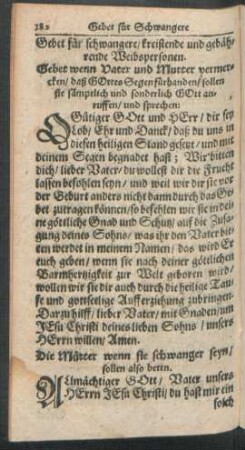 182 Gebet für Schwangere
Gebet für schwangere/ kreistende und gebäh-
rende Weibspersonen.
Gebet wenn Vater und Mutter vermer-
cken/ daß GOttes Segen fürhanden/ sollen
sie sämptlich und sonderlich GOtt an-
ruffen/ und sprechen:
O Gütiger GOtt und HErr/ dir sey
Lob/ Ehr und Danck/ daß du uns in
diesen heiligen Stand gesetzt/ und mit
deinem Segen begnadet hast; Wir bitten
dich/ lieber Vater/ du wollest dir die Frucht
lassen befohlen seyn/ und weil wir dir sie vor
der Geburt anders nicht dann durch das Ge-
bet zutragen können/ so befehlen wir sie in dei-
ne göttliche Gnad und Schutz/ auf die Zusa-
gung deines Sohns/ was ihr den Vater bit-
ten werdet in meinem Namen/ das wird Er
euch geben/ wenn sie nach deiner göttlichen
Barmhertzigkeit zur Welt geboren wird/
wollen wir sie dir auch durch die heilige Tau-
fe und gottselige Aufferziehung zubringen.
Darzu hilff/ lieber Vater/ mit Gnaden/ um
JEsu Christi deines lieben Sohns/ unsers
HErrn willen/ Amen.
Die Mütter wenn sie schwanger seyn/
sollen also beten.
Allmächtiger GOtt/ Vater unsers
HErrn JEsu Christi/ du hast mir ein
solch